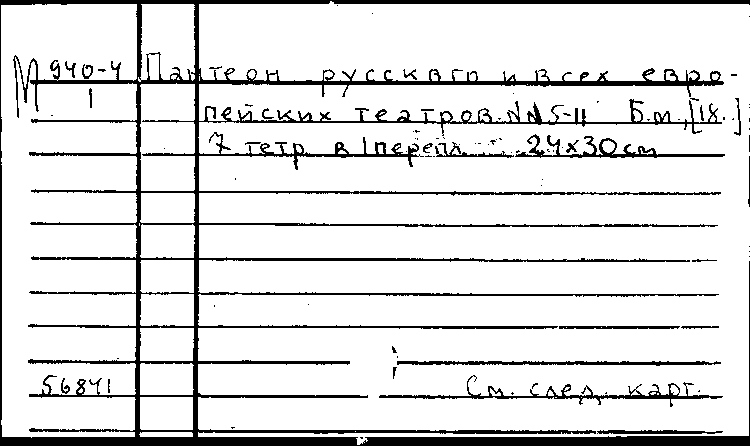 М 940-4 Пантеон русскаго и всех евро-
1 пейских театров. NN5-11 Б.м., [18. ]
7 тетр в 1 перепл. 24x30 см
56841 См. след. карт.